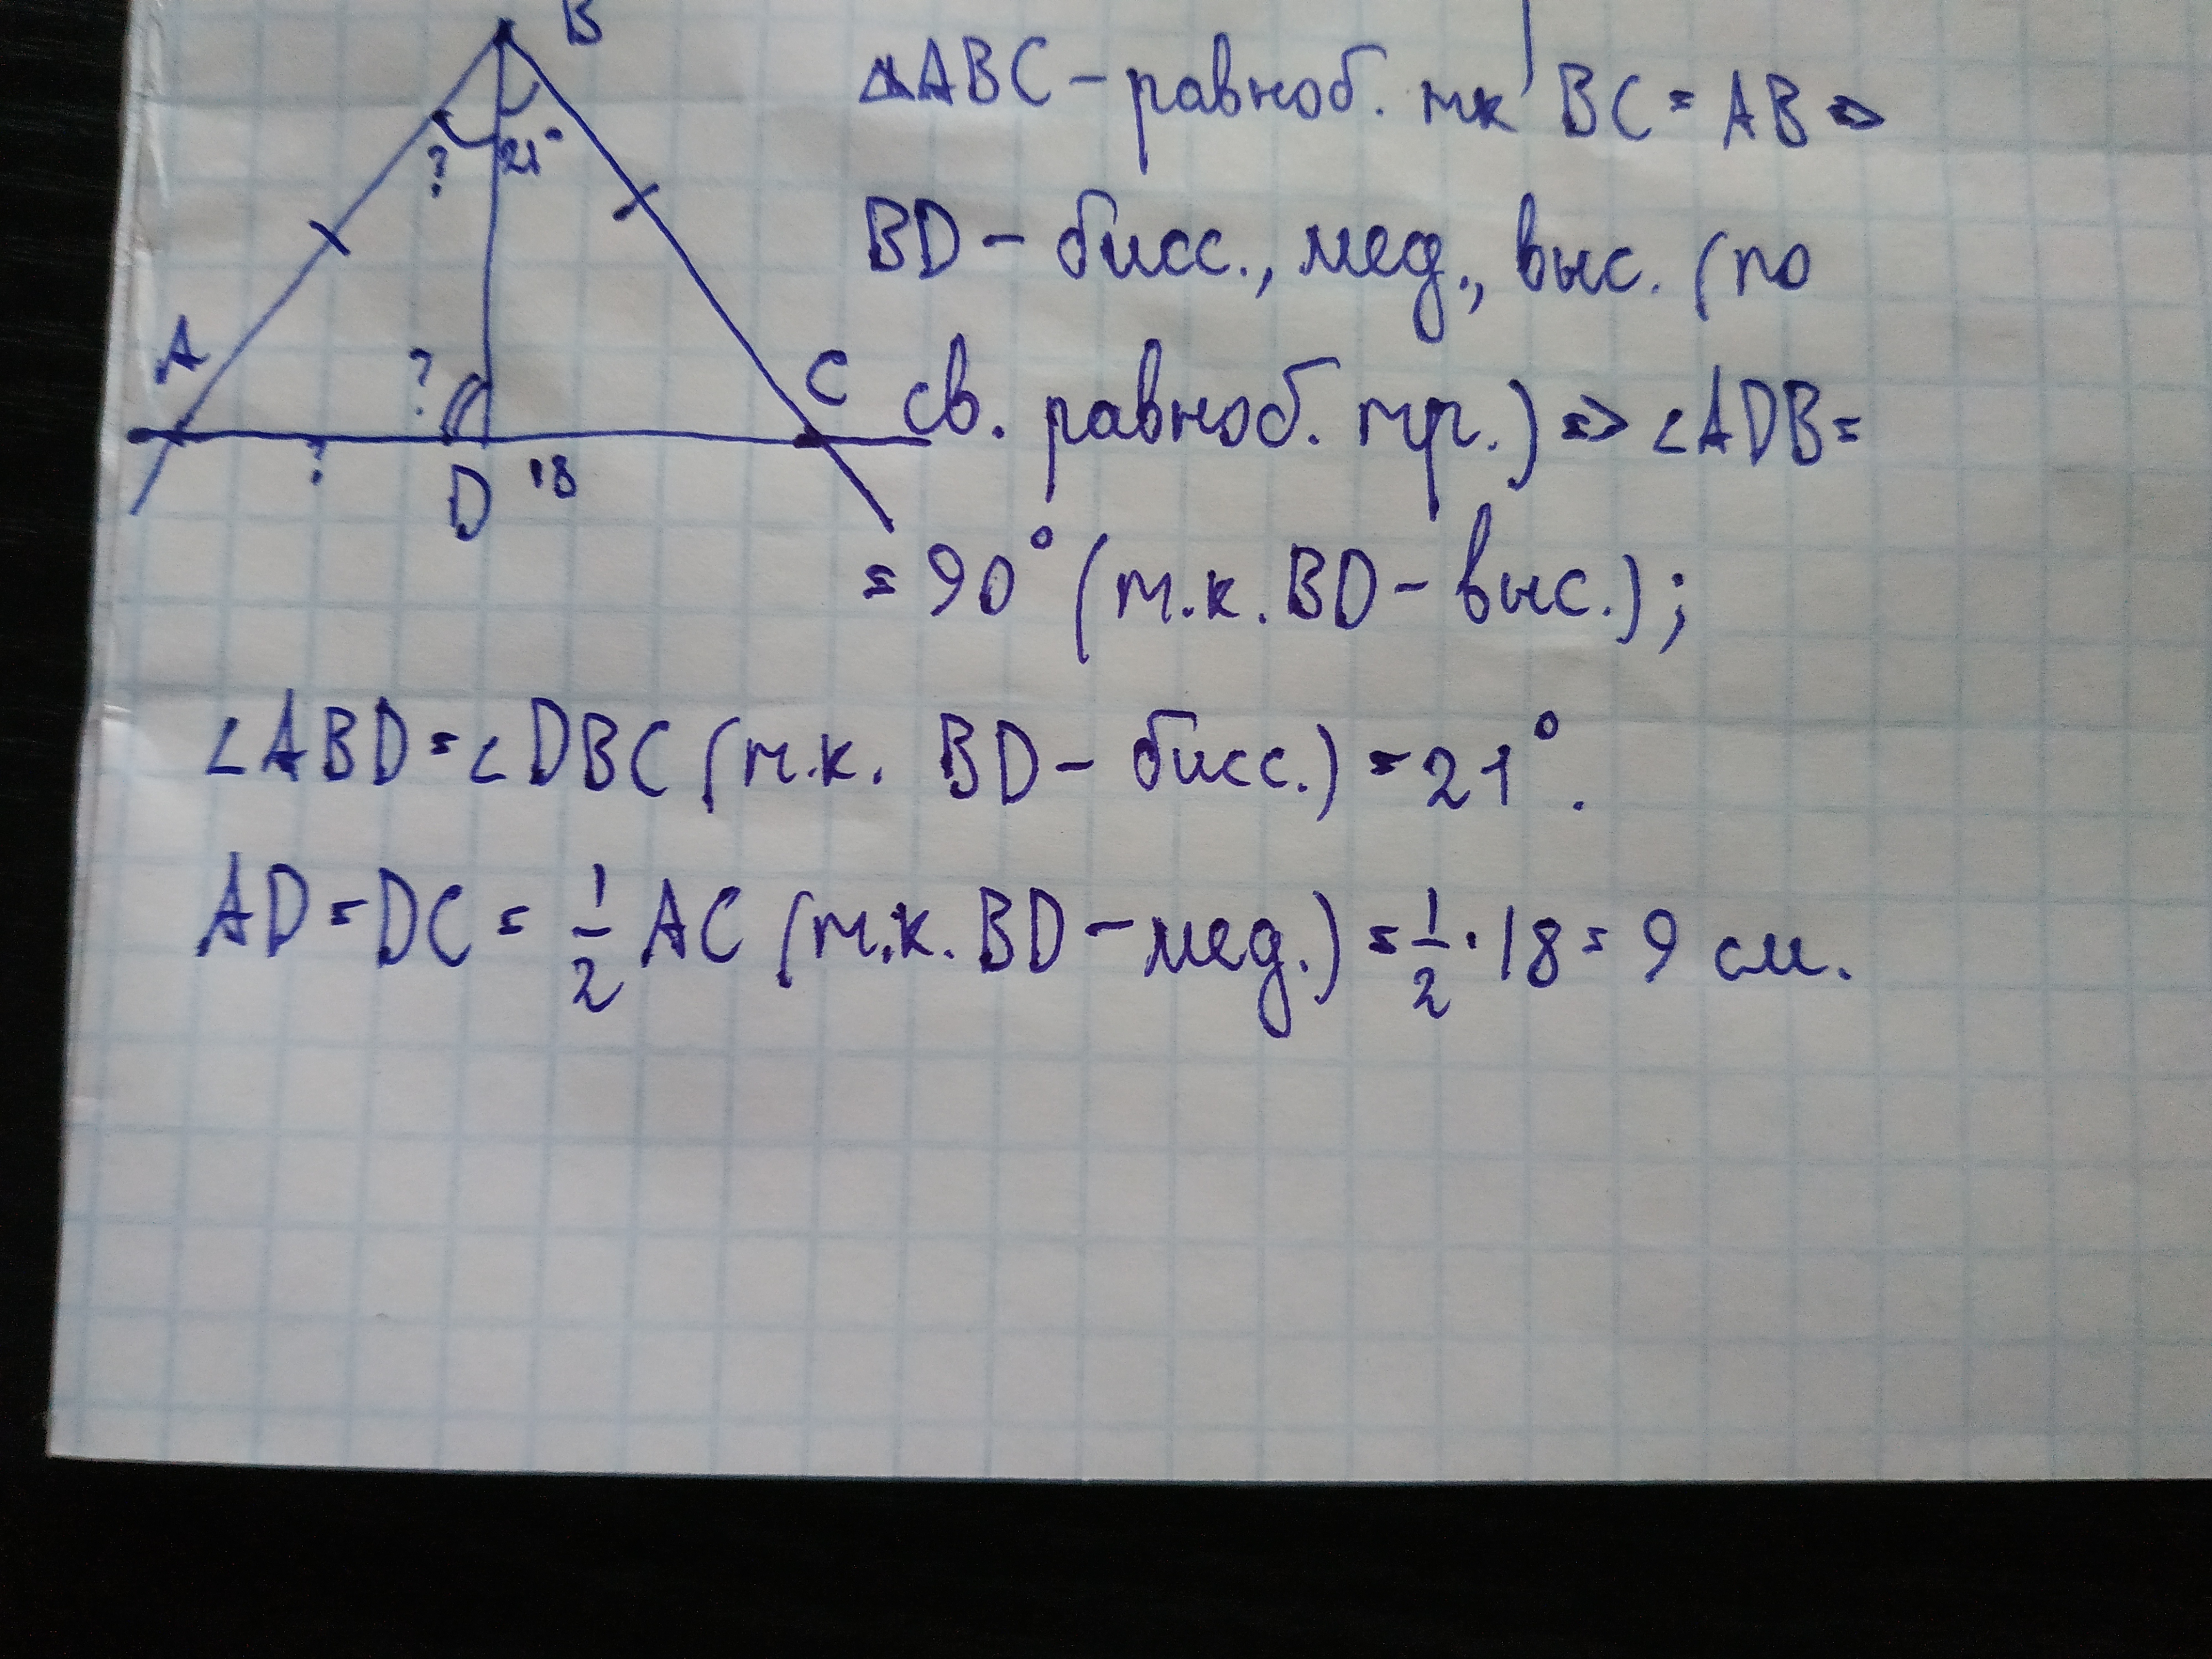 B
? 21°
A
?
C
?
D 18
△ABC – равноб. тк BC = AB ⇒
BD – бисс., мед., выс. (по
св. равноб. тр.) ⇒ ∠ADB =
= 90° (т.к. BD – выс.);
∠ABD = ∠DBC (т.к. BD – бисс.) = 21°.
AD = DC = 1/2 AC (т.к. BD – мед.) = 1/2 · 18 = 9 см.